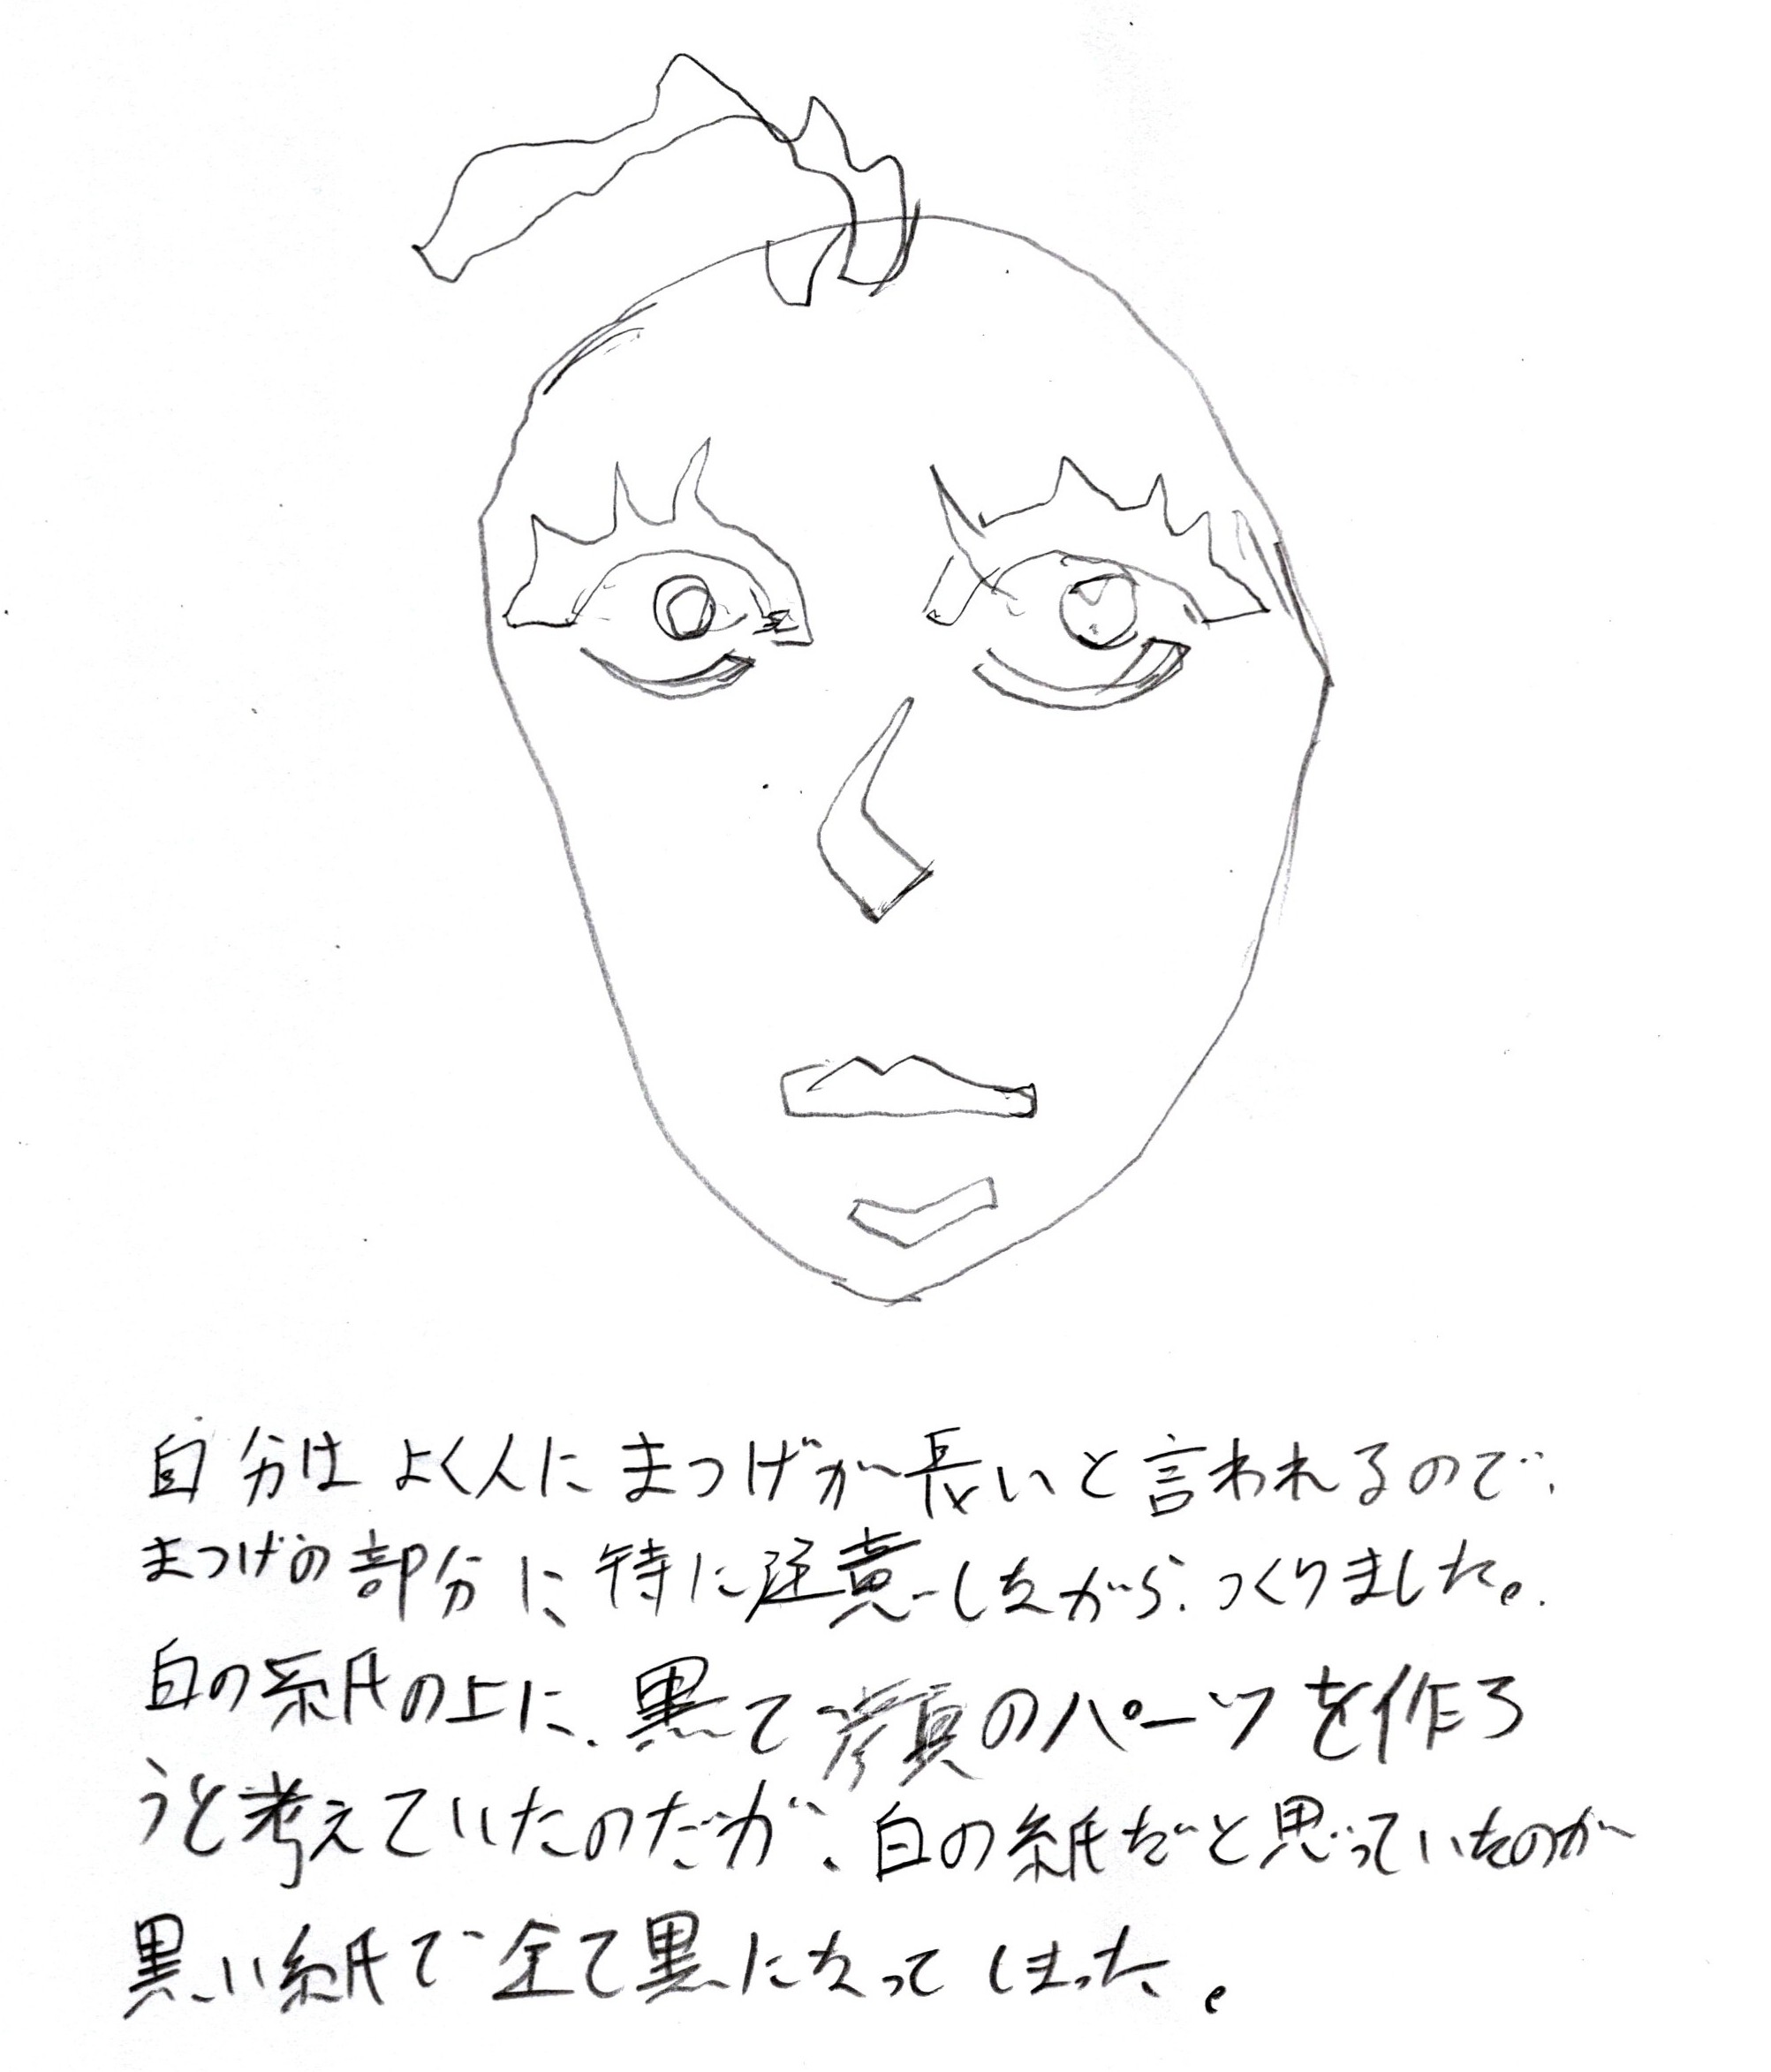 自分はよく人にまつげが長いと言われるので、
まつげの部分に、特に注意しながら、つくりました。
白の紙の上に、黒で顔のパーツを作ろ
うと考えていたのだが、白の紙だと思っていたのが
黒い紙で全て黒になってしまった。